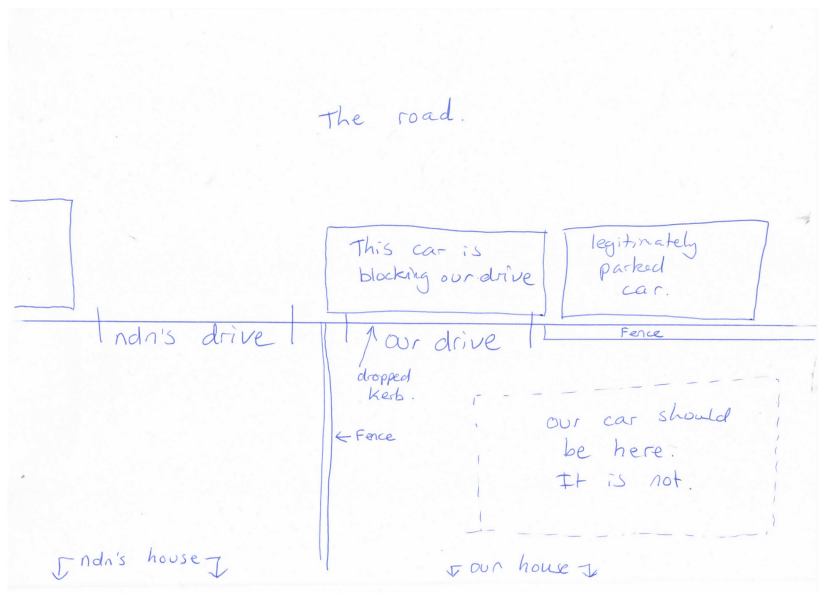 The road.
This car is
blocking our drive
legitimately
parked
car.
ndn's drive
our drive
Fence
dropped
Kerb.
← Fence
our car should
be here.
It is not.
ndn's house
our house